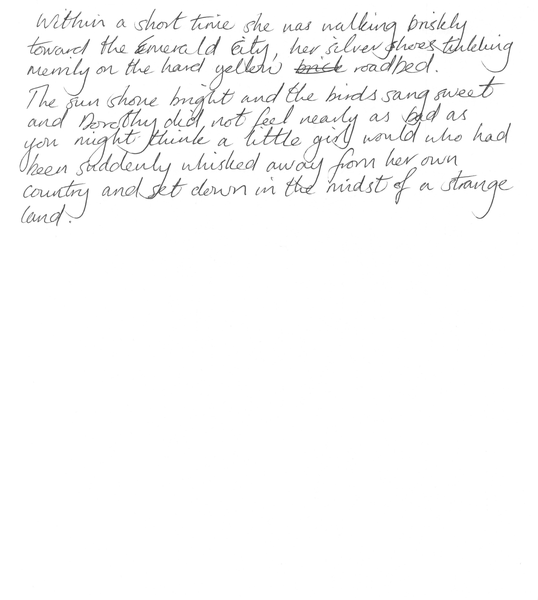 Within a short time she was walking briskly
toward the Emerald City, her silver shoes tinkling
merrily on the hard yellow brick roadbed.
The sun shone bright and the birds sang sweet
and Dorothy did not feel nearly as bad as
you might think a little girl would who had
been suddenly whisked away from her own
country and set down in the midst of a strange
land.